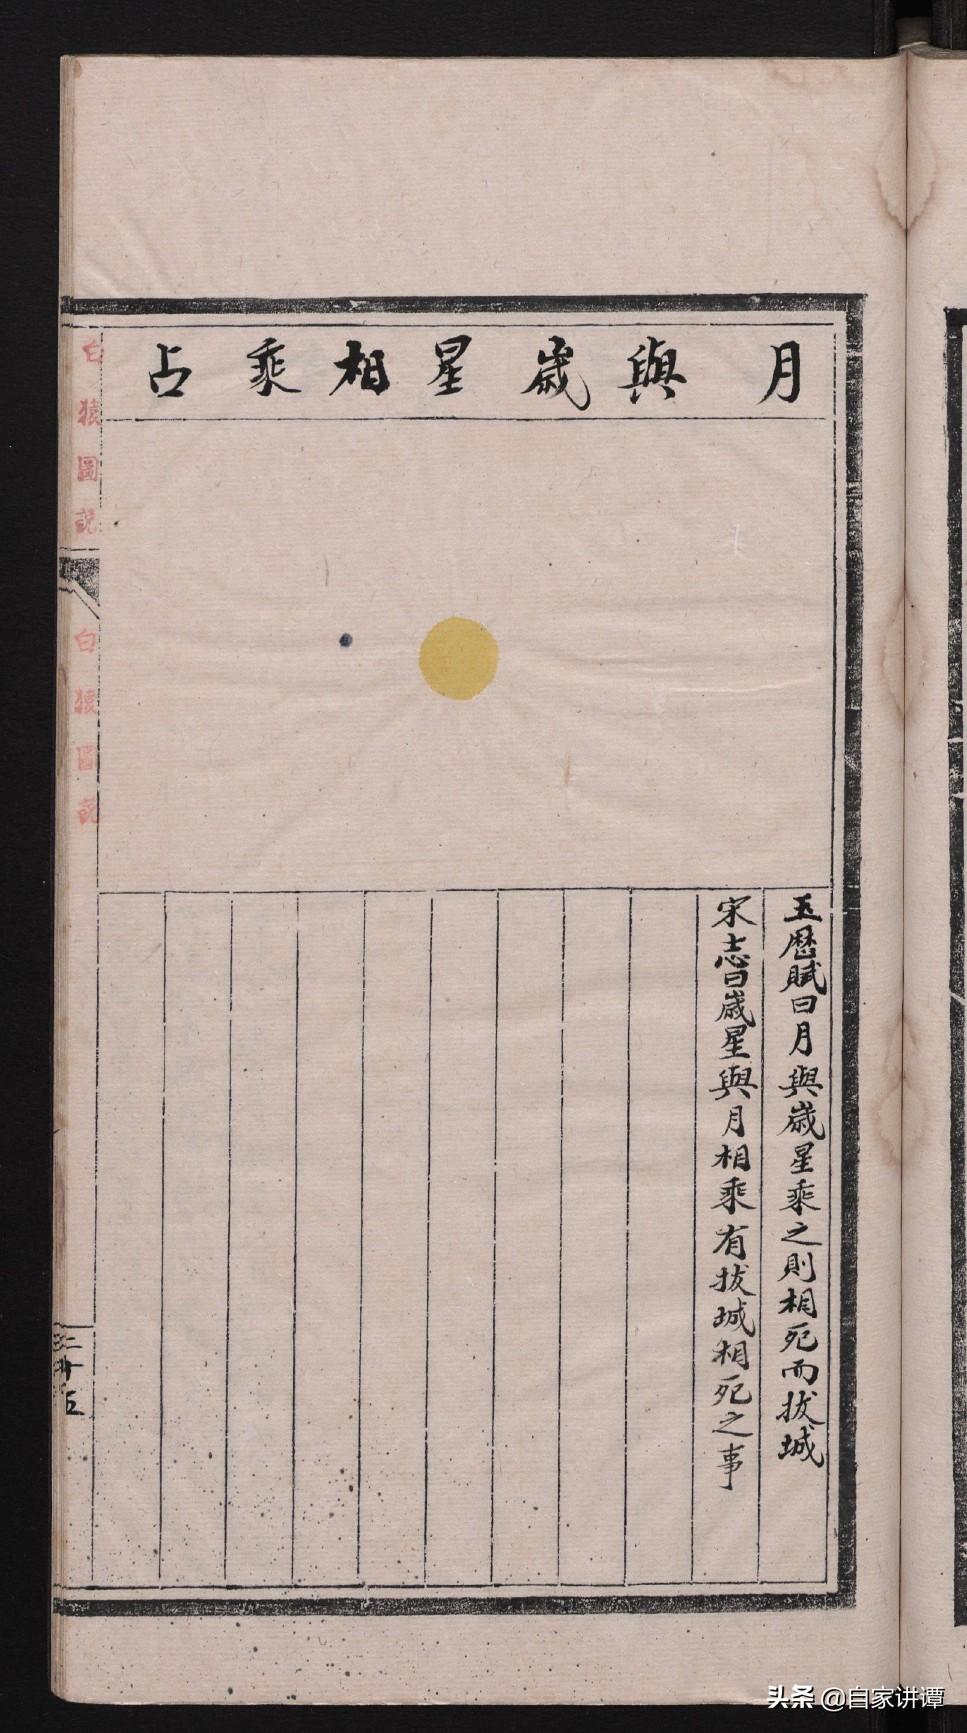 月與歲星相乘占
玉曆賦曰月與歲星乘之則相死而拔城
宋志曰歲星與月相乘有拔城相死之事
白猿圖說
白猿圖說
二十五
头条 @自家讲谭